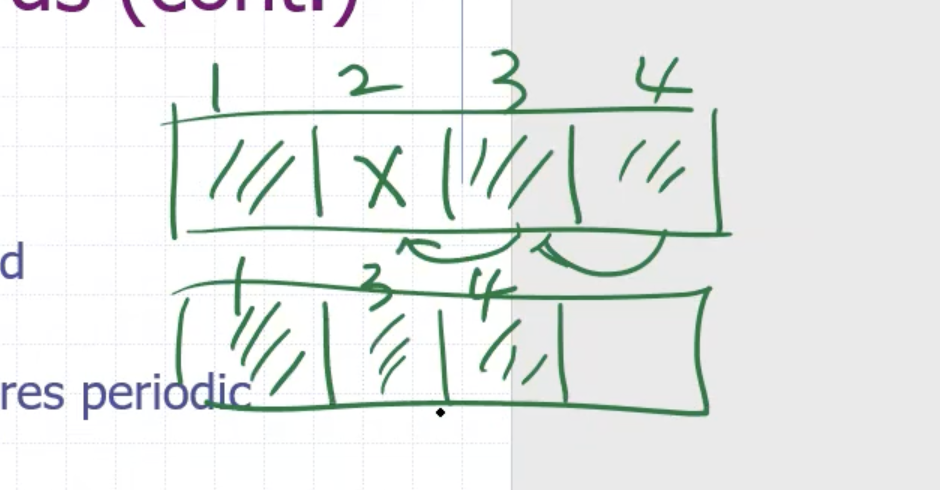 (cont.)
1 2 3 4
X
d
1 3 4
res periodic